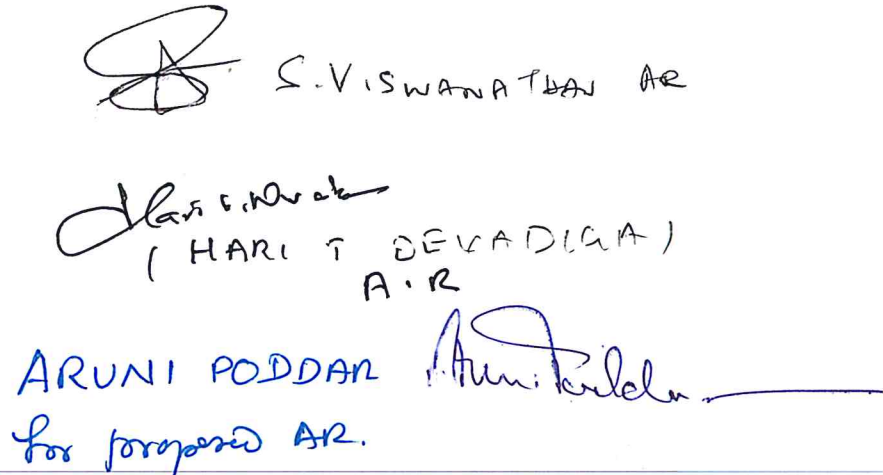 S. VISWANATHAN AR
(HARI T DEVADIGA)
A.R
ARUNI PODDAR
for proposed AR.